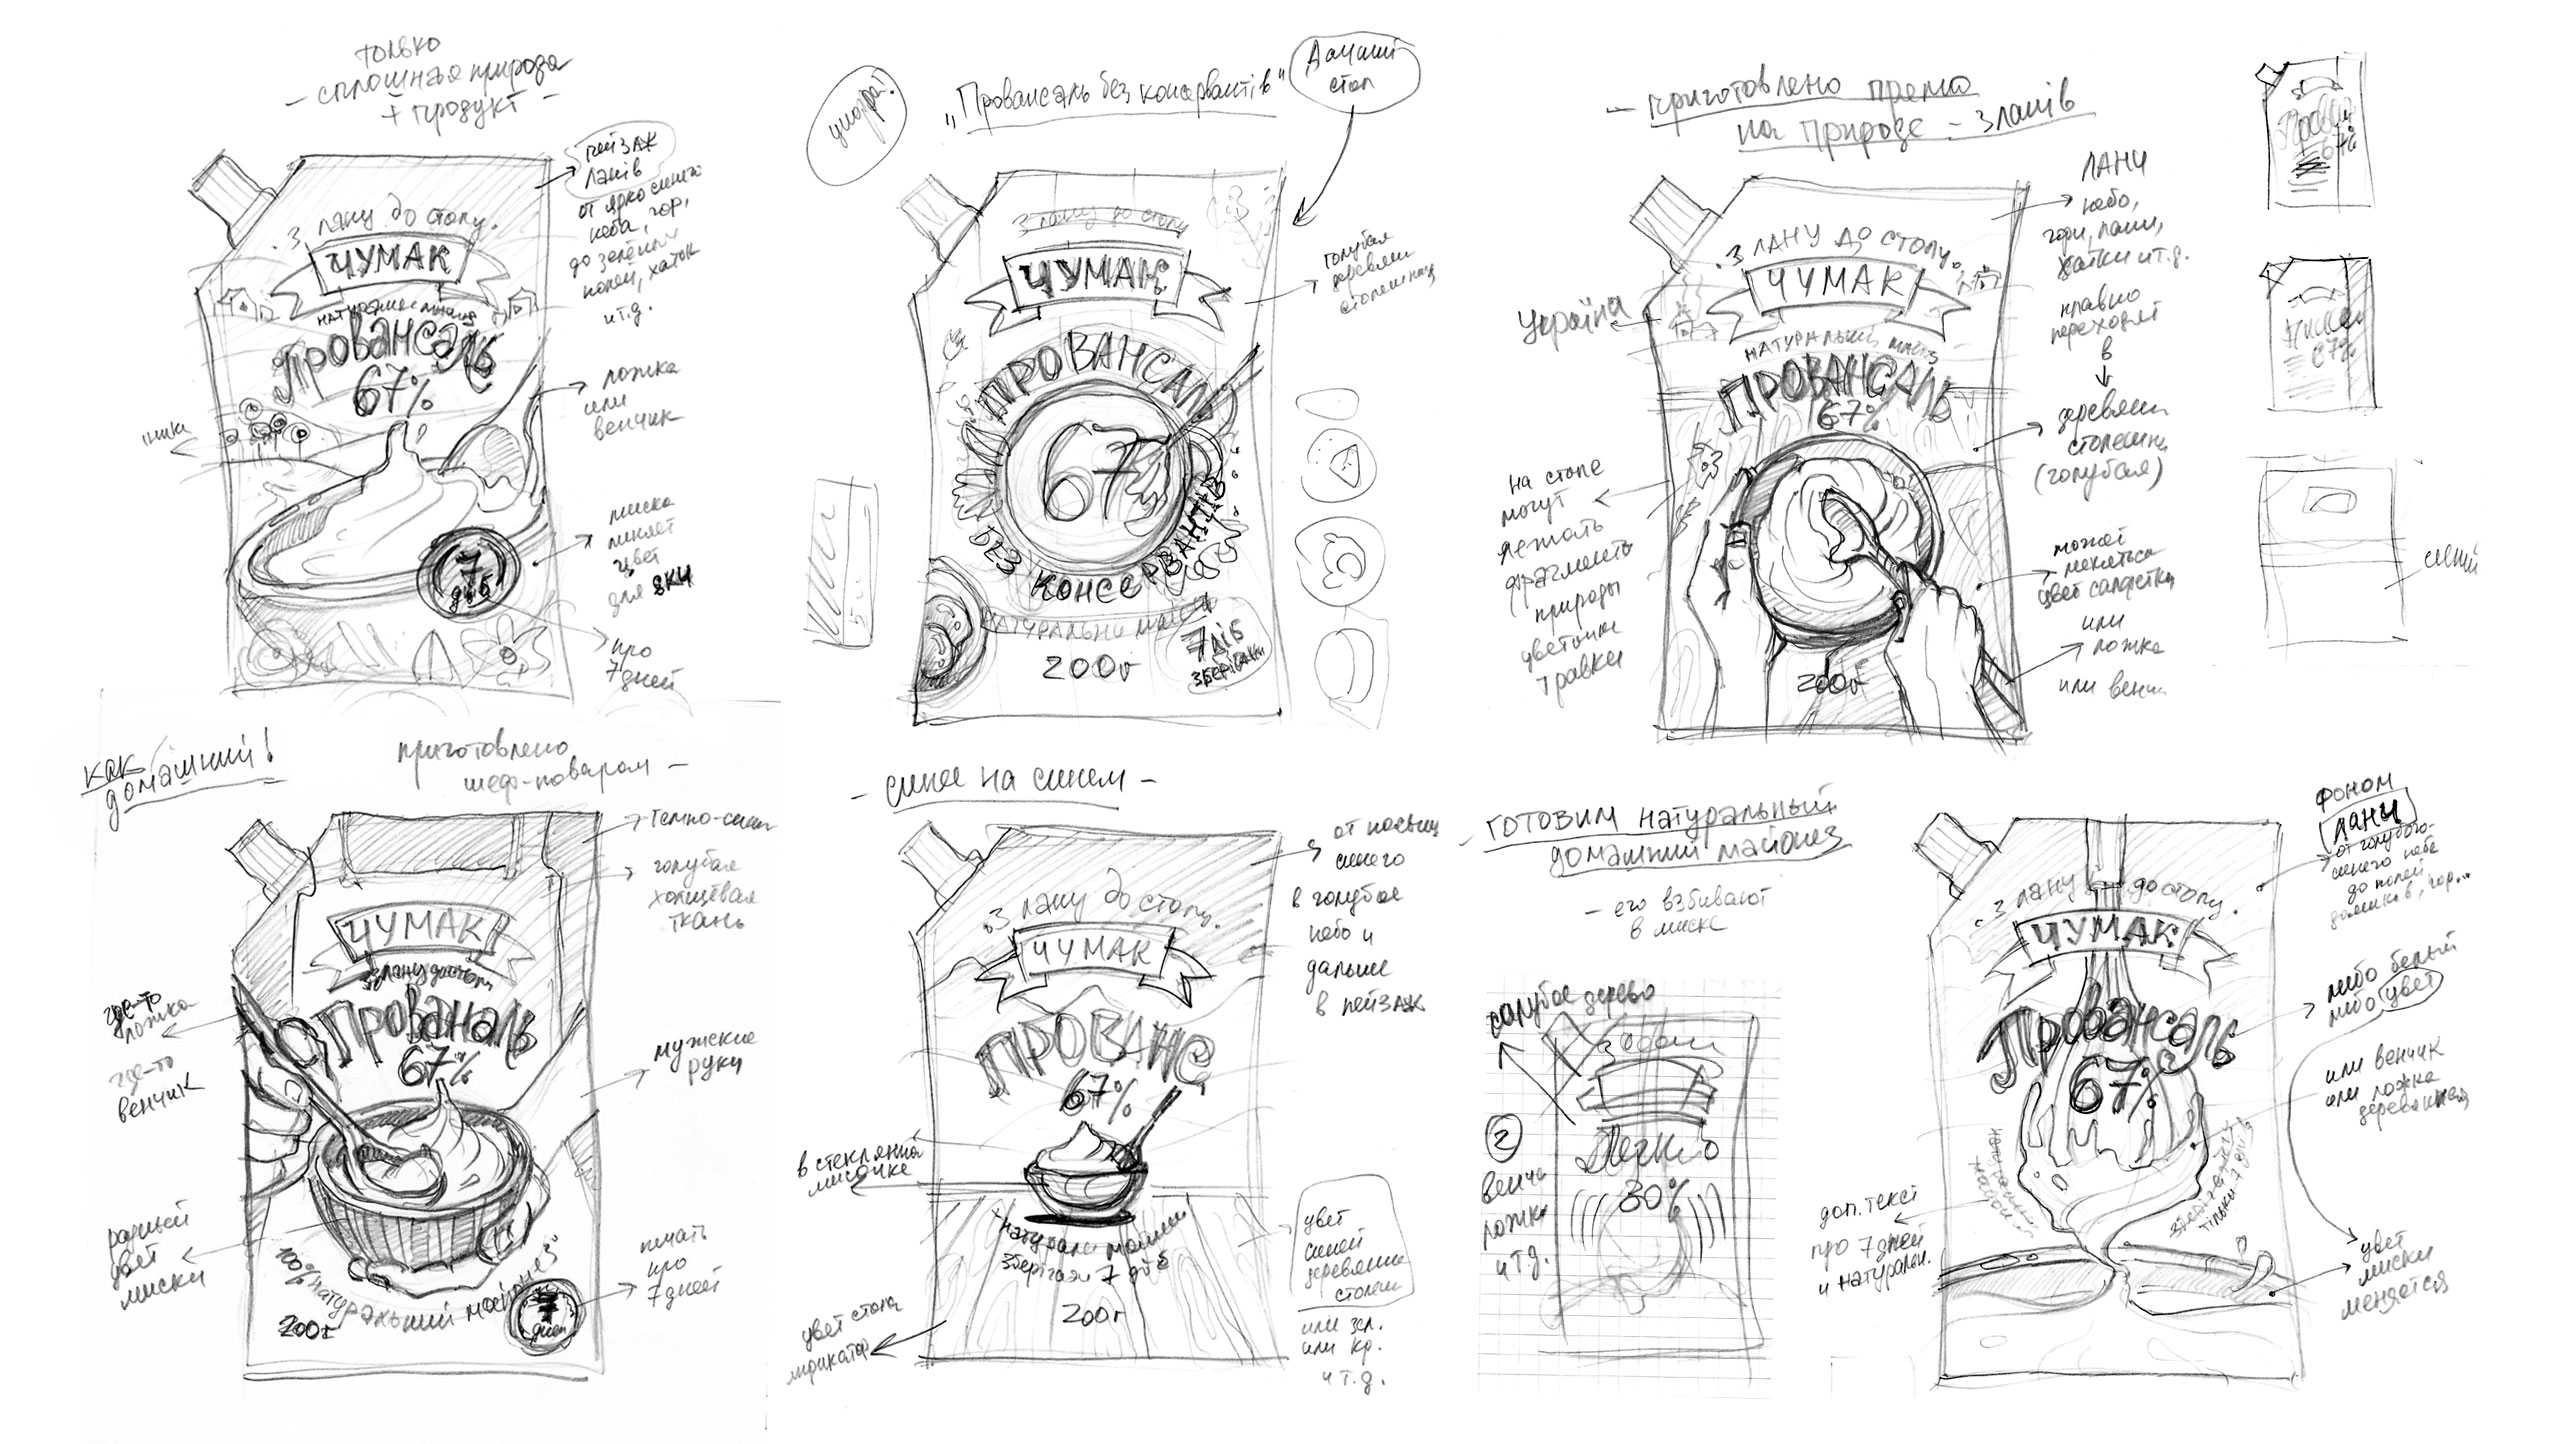 только
- сплошная природа
+ продукт -
З лану до столу.
ЧУМАК
Провансаль
67%
7
діб
пейзаж
ланів
от ярко синего
неба, гор,
неба,
до зелёных
полей, хаток
и т.д.
ложка
или
венчик
миска
меняет
цвет
для яки
про
7 дней
„Провансаль без консервантів"
Домашний
стол
З лану до столу
ЧУМАК
ПРОВАНСАЛЬ
67
БЕЗ КОНСЕРВАНТІВ
200г
7 діб
зберігати
голубая
деревян
столешница
- приготовлено прямо
на природе - з ланів
.З ЛАНУ ДО СТОЛУ.
ЧУМАК
НАТУРАЛЬНИЙ
ПРОВАНСАЛЬ
67%
200г
Україна
на столе
могут
лежать
фрагменты
природы
цветочки
травки
ЛАНИ
небо,
гори, лани,
хатки и т.д.
плавно
переходят
в
деревян
столешн
(голубая)
может
меняться
цвет салфетки
или
ложка
или венч
67%
67%
синий
как
домашний!
приготовлено
шеф-поваром -
ЧУМАК
З лану до столу
Прованаль
67%
100% натуральний майонез"
200г
7
дней
где-то
ложка
где-то
венчик
разный
цвет
миски
темно-синий
голубая
холщевая
ткань
мужские
руки
печать
про
7 дней
- синее на синем -
.З лану до столу.
ЧУМАК
ПРОВАНС
67%
зберігати 7 діб
200г
в стеклянной
мисочке
цвет стола
индикатор
синего
в голубое
небо и
дальше
в пейзаж
цвет
синей
деревянной
столеш
или зел.
или кр.
и т.д.
- готовим натуральный
домашний майонез
- его взбивают
в миске
голубое дерево
2
венчик
ложка
и т.д.
30%
.З лану до столу.
ЧУМАК
Провансаль
67%
тільки 7 днів
доп. текст
про 7 дней
и натуральн.
фоном
лани
от голубого-
синего неба
до полей
домиков, гор...
либо белый
либо цвет
или венчик
или ложка
деревянная
цвет
миски
меняется